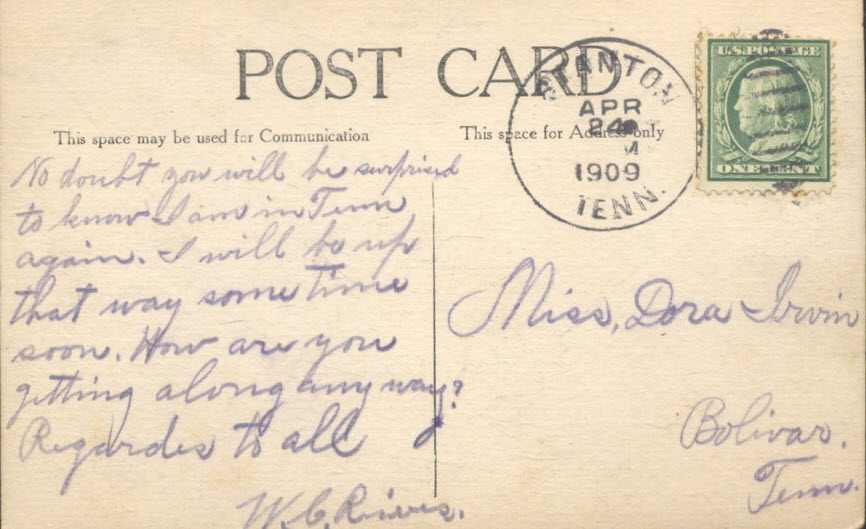 POST CARD
STANTON
APR
24
M
1909
TENN.
U.S. POSTAGE
ONE CENT
This space may be used for Communication
This space for Address only
No doubt you will be surprised
to know I am in Tenn
again. I will be up
that way some time
soon. How are you
getting along any way?
Regardes to all
W.C. Rives.
Miss, Dora Irvin
Bolivar.
Tenn.